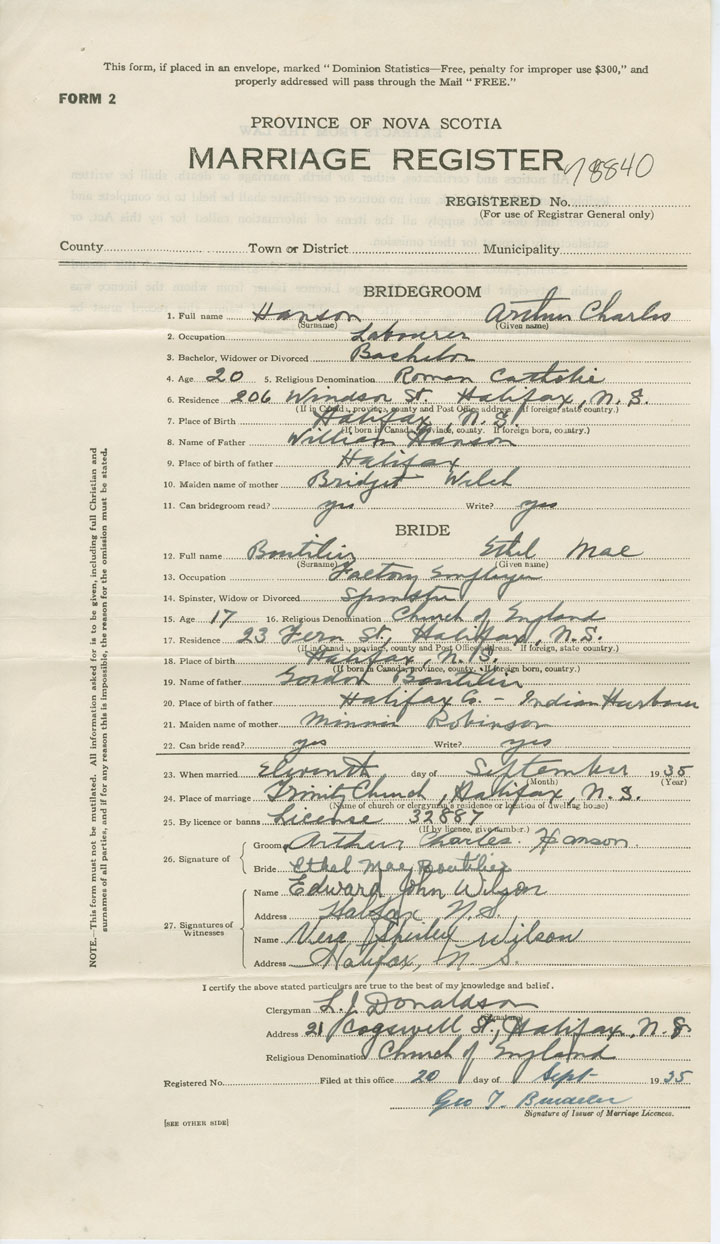 This form, if placed in an envelope, marked "Dominion Statistics—Free, penalty for improper use $300," and
properly addressed will pass through the Mail "FREE."
FORM 2
PROVINCE OF NOVA SCOTIA
MARRIAGE REGISTER
78840
REGISTERED No.
(For use of Registrar General only)
County Town or District Municipality
BRIDEGROOM
1. Full name Hanson Arthur Charles
(Surname) (Given name)
2. Occupation Labourer
3. Bachelor, Widower or Divorced Bachelor
4. Age 20 5. Religious Denomination Roman Catholic
6. Residence 206 Windsor St. Halifax, N.S.
(If in Canada, province, county and Post Office address. If foreign, state country.)
7. Place of Birth Halifax, N.S.
(If born in Canada, province, county. If foreign born, country.)
8. Name of Father William Hanson
9. Place of birth of father Halifax
10. Maiden name of mother Bridget Welch
11. Can bridegroom read? yes Write? yes
BRIDE
12. Full name Boutilier Ethel Mae
(Surname) (Given name)
13. Occupation Factory Employee
14. Spinster, Widow or Divorced Spinster
15. Age 17 16. Religious Denomination Church of England
17. Residence 23 Fern St., Halifax, N.S.
(If in Canada, province, county and Post Office address. If foreign, state country.)
18. Place of birth Halifax, N.S.
(If born in Canada, province, county. If foreign born, country.)
19. Name of father Gordon Boutilier
20. Place of birth of father Halifax Co. - Indian Harbour
21. Maiden name of mother Minnie Robinson
22. Can bride read? yes Write? yes
23. When married Eleventh day of September 1935
(Month) (Year)
24. Place of marriage Trinity Church, Halifax, N.S.
(Name of church or clergyman's residence or location of dwelling house)
25. By licence or banns License 32887
(If by licence, give number.)
26. Signature of Groom Arthur Charles Hanson
Bride Ethel Mae Boutilier
27. Signatures of Witnesses
Name Edward John Wilson
Address Halifax N.S.
Name Vera Shirley Wilson
Address Halifax, N.S.
I certify the above stated particulars are true to the best of my knowledge and belief.
Clergyman L. J. Donaldson
(Signature)
Address 21 Cogswell St., Halifax, N.S.
Religious Denomination Church of England
Registered No. Filed at this office 20 day of Sept 1935
Geo T.
Signature of Issuer of Marriage Licences.
[SEE OTHER SIDE]
NOTE.—This form must not be mutilated. All information asked for is to be given, including full Christian and
surnames of all parties, and if for any reason this is impossible, the reason for the omission must be stated.